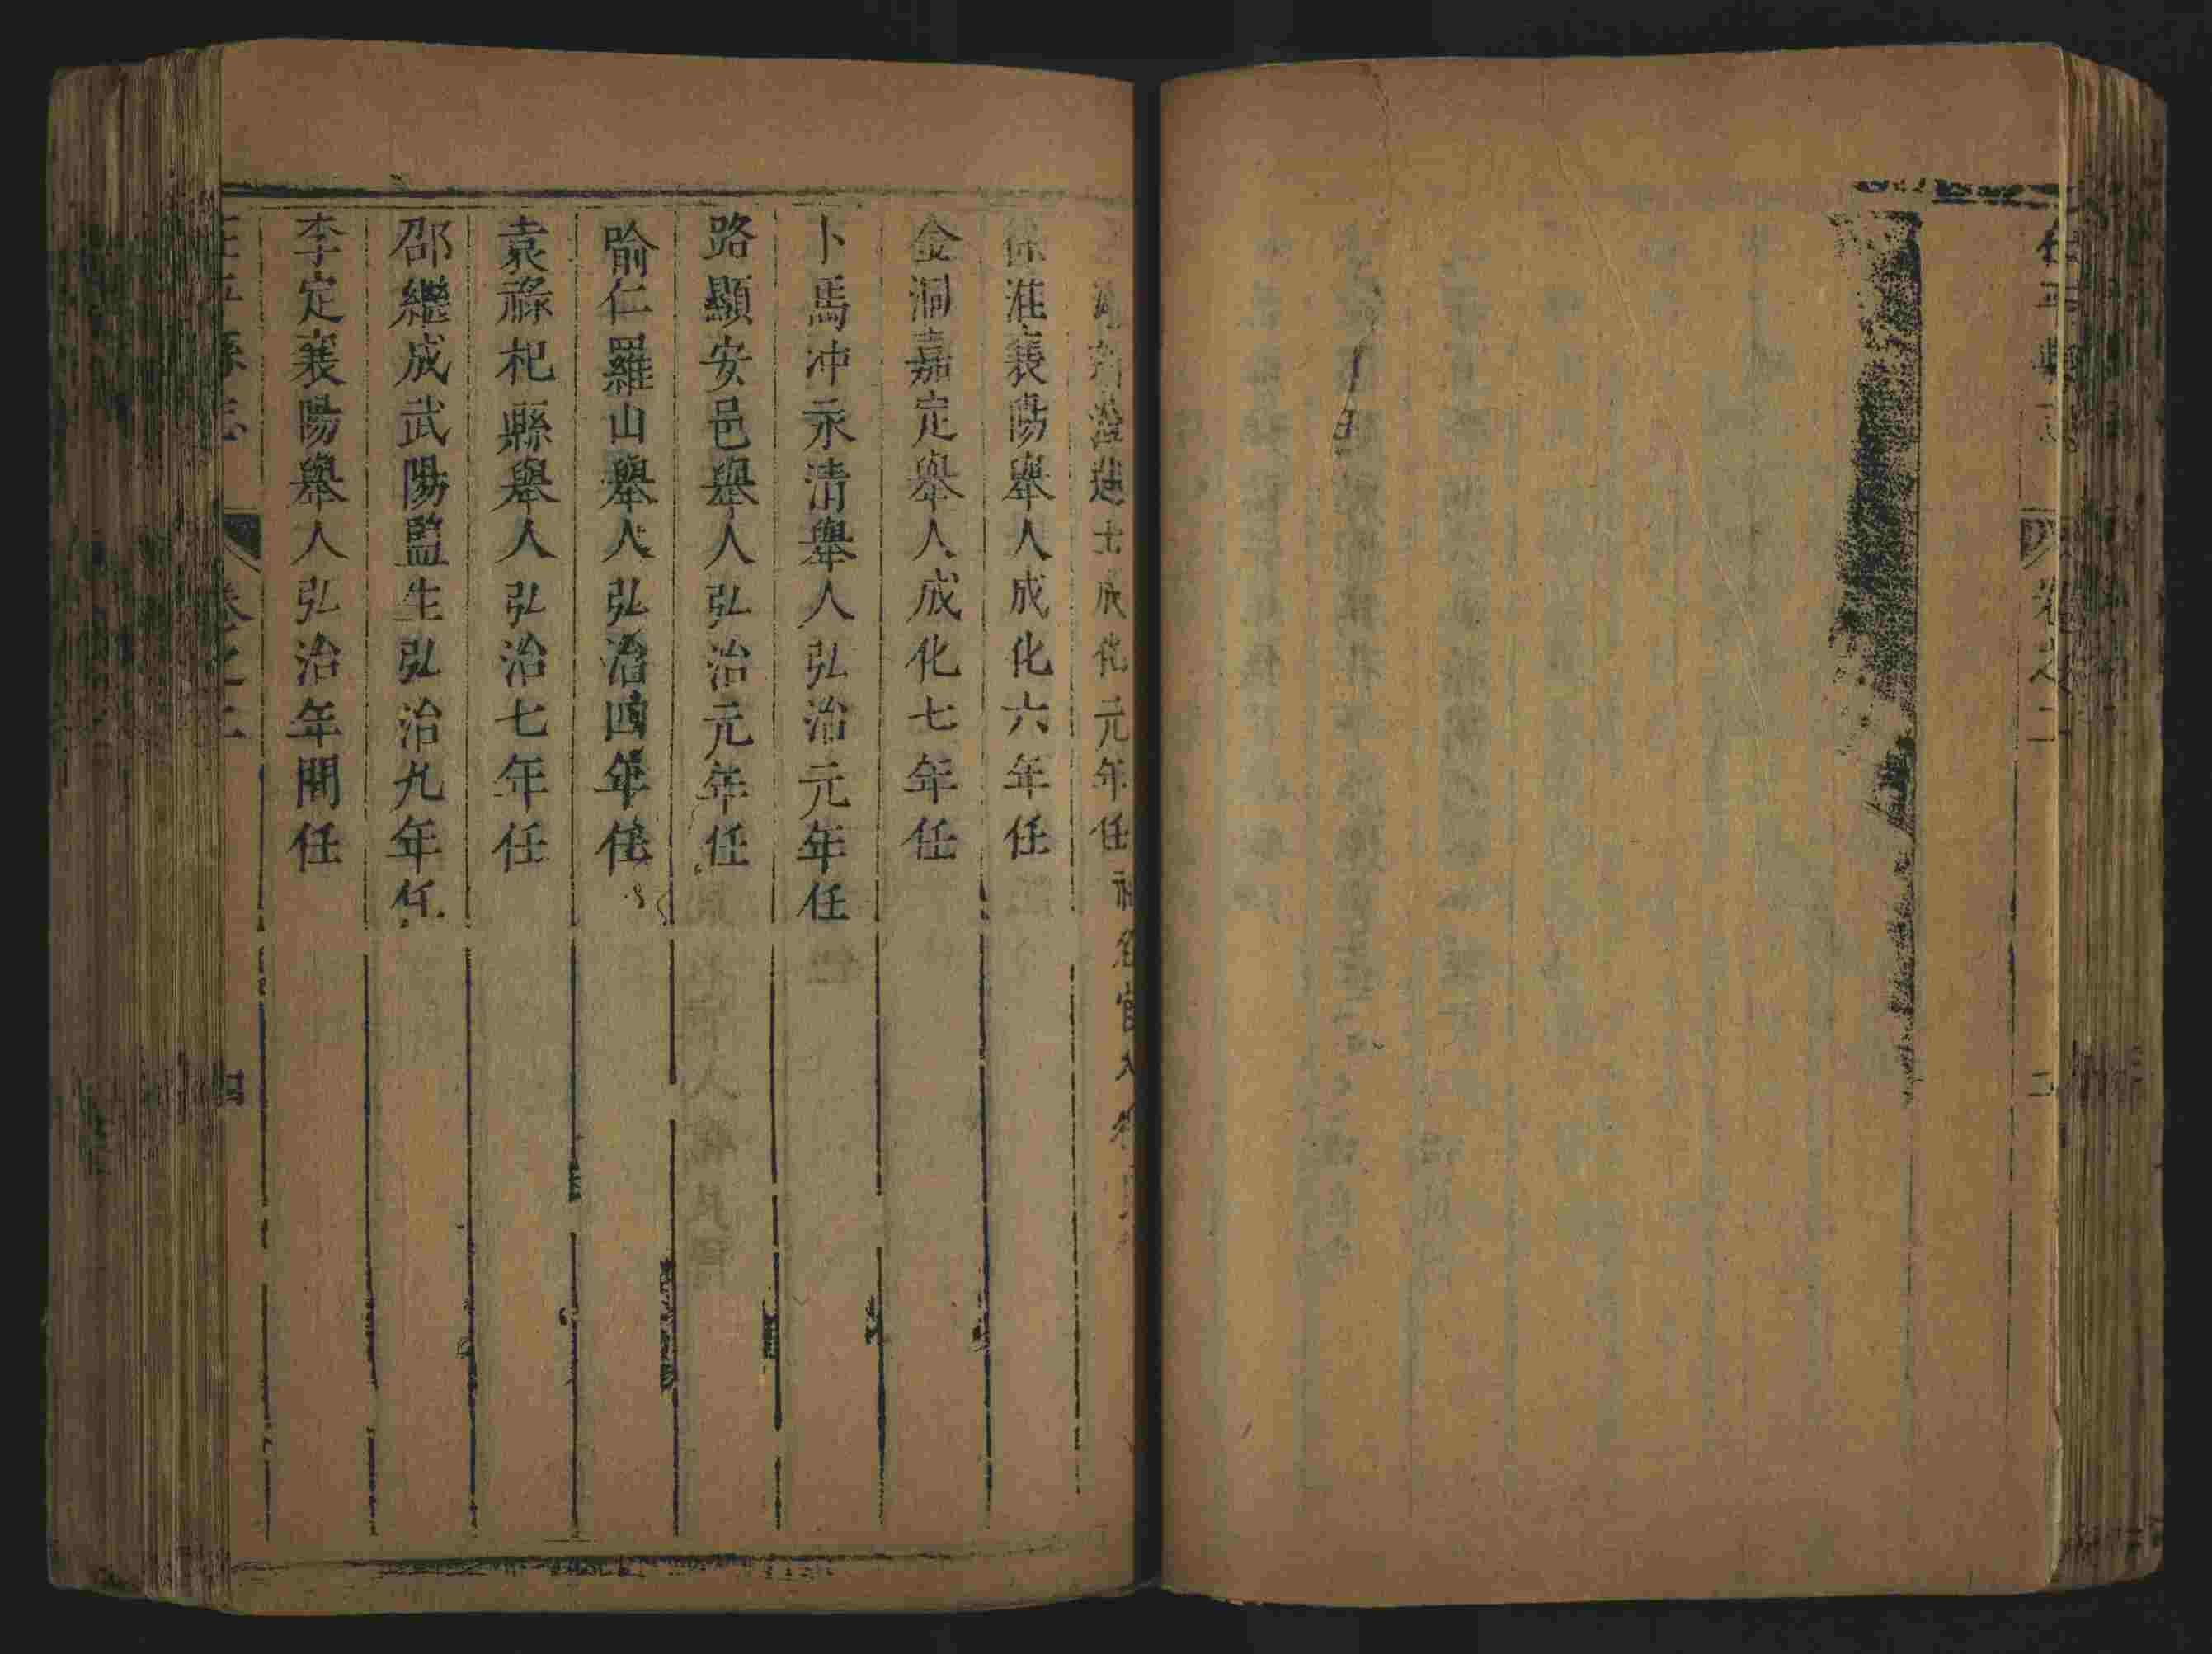 卷之二
進士成化元年任
徐淮襄陽舉人成化六年任
金洞嘉定舉人成化七年任
卜馬冲永清舉人弘治元年任
路顯安邑舉人弘治元年任
喻仁羅山舉人弘治四年任
袁祿杞縣舉人弘治七年任
邵繼成武陽監生弘治九年任
李定襄陽舉人弘治年間任
卷之二
四